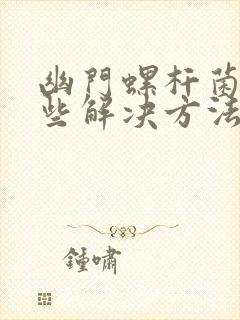 幽門螺杆菌
些解决方法
鍾嘯